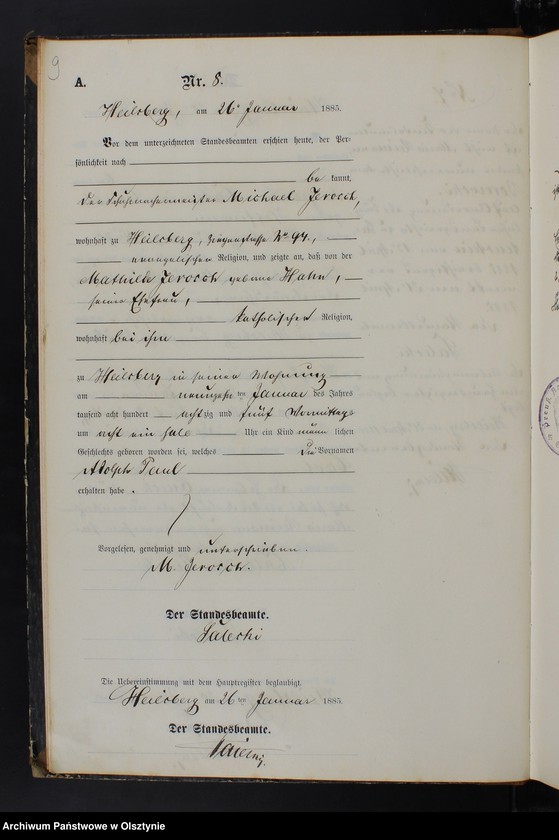 9
A. Nr. 8.
Heilsberg, am 26ten Januar 1885.
Vor dem unterzeichneten Standesbeamten erschien heute, der Per-
sönlichkeit nach
be kannt,
der Schuhmachermeister Michael Jerosch,
wohnhaft zu Heilsberg, No 94,
evangelischer Religion, und zeigte an, daß von der
Mathilde Jerosch geborne Hahn,
seiner Ehefrau,
katholischer Religion,
wohnhaft bei ihm
zu Heilsberg in seiner Wohnung
am neunzehn ten Januar des Jahres
tausend acht hundert achtzig und fünf Vormittags
um acht ein halb Uhr ein Kind männ lichen
Geschlechts geboren worden sei, welches die Vornamen
Adolph Paul
erhalten habe.
Vorgelesen, genehmigt und unterschrieben.
M. Jerosch.
Der Standesbeamte.
Die Uebereinstimmung mit dem Hauptregister beglaubigt.
Heilsberg am 26ten Januar 1885.
Der Standesbeamte.
Archiwum Państwowe w Olsztynie